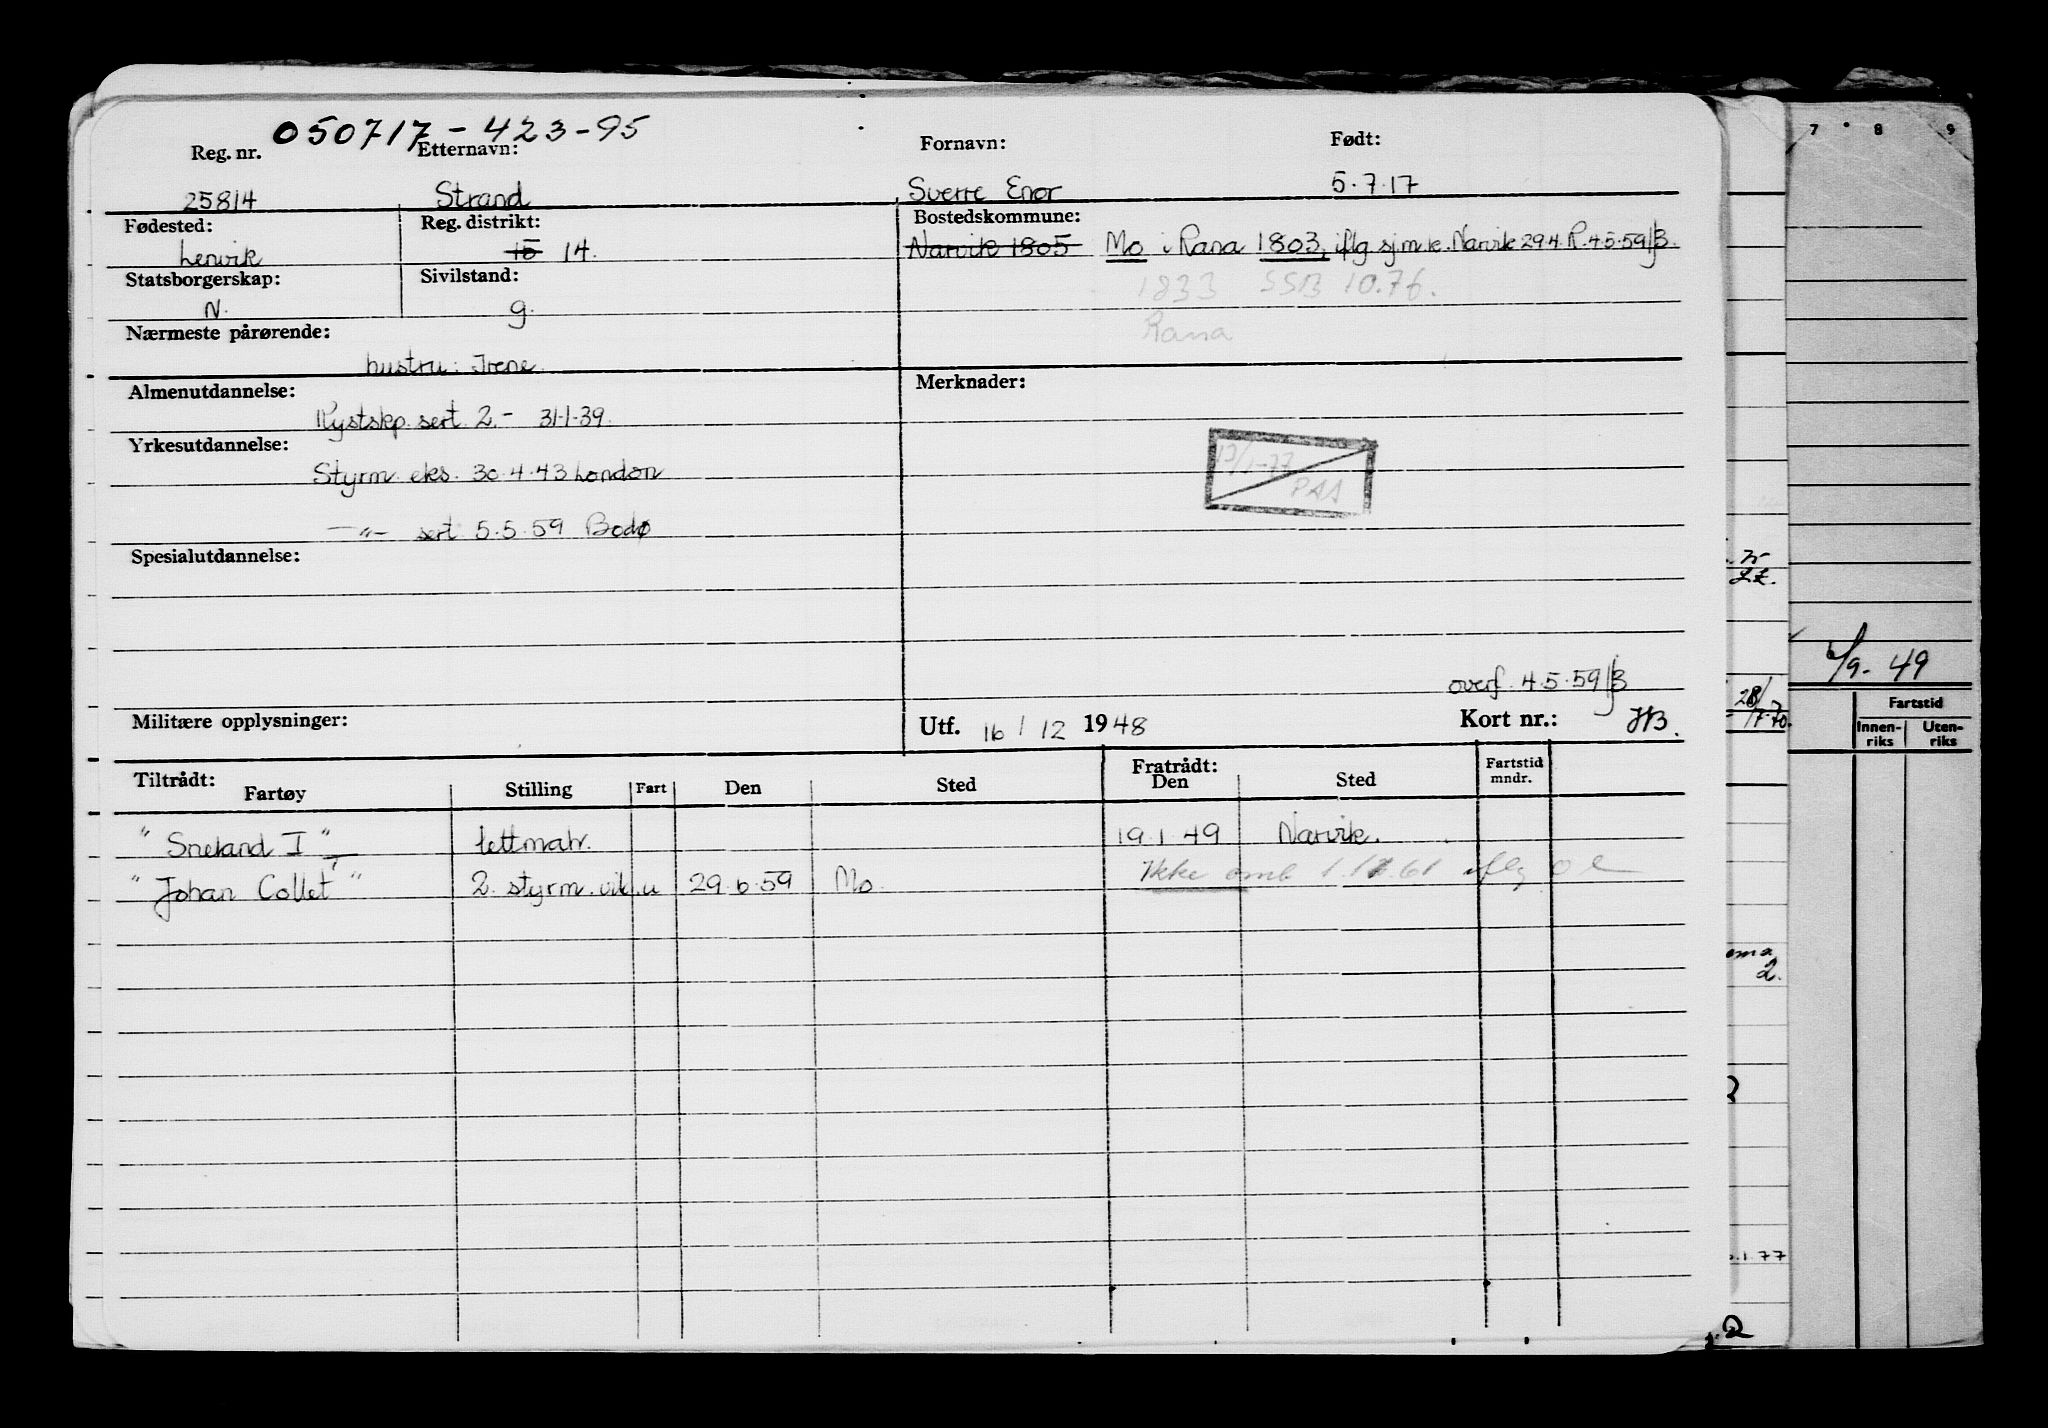 050717-423-95
Reg. nr. Etternavn: Fornavn: Født:
25814 Strand Sverre Enor 5.7.17
Fødested: Reg. distrikt: Bostedskommune:
Lervik 15 14. Narvik 1805 Mo i Rana 1803, iflg sj.m.k. Narvik 29.4. R. 4.5.59/JB.
Statsborgerskap: Sivilstand: 1833 SSB 10.76.
N. g. Rana
Nærmeste pårørende:
hustru: Irene.
Almenutdannelse: Merknader:
Kystskp. sert. 2.- 31.1.39.
Yrkesutdannelse:
Styrm. eks. 30.4.43 London
13/1-77
PAA
—"— sert. 5.5.59 Bodø
Spesialutdannelse:
overf. 4.5.59/JB
Militære opplysninger: Utf. 16/12 1948 Kort nr.: HB.
Tiltrådt: Fratrådt: Fartstid mndr.
Fartøy Stilling Fart Den Sted Den Sted
"Sneland I" lettmatr. 19.1.49 Narvik.
"Johan Collet" 2. styrm. vik. u 29.6.59 Mo. Ikke omb 1.11.61 iflg
7 8 9
28/
17-70.
6/9-49
Fartstid
Innen-
riks
Uten-
riks
.1.77
2